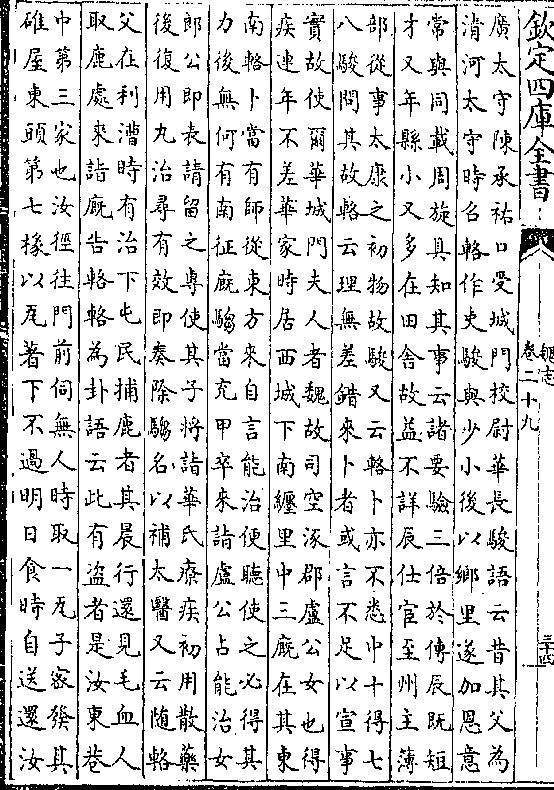 欽定四庫全書
魏志
卷二十九
三十四
廣太守陳承祐口受城門校尉華長駿語云昔其父為
清河太守時召輅作吏駿與少小後以鄉里遂加恩意
常與同載周旋具知其事云諸要驗三倍於傳辰既短
才又年縣小又多在田舍故益不詳辰仕宦至州主簿
部從事太康之初物故駿又云輅卜亦不悉中十得七
八駿問其故輅云理無差錯來卜者或言不足以宣事
實故使爾華城門夫人者魏故司空涿郡盧公女也得
疾連年不差華家時居西城下南纏里中三廐在其東
南輅卜當有師從東方來自言能治便聽使之必得其
力後無何有南征廐騶當充甲卒來詣盧公占能治女
郎公即表請留之專使其子將詣華氏療疾初用散藥
後復用丸治尋有效即奏除騶名以補太醫又云随輅
父在利漕時有治下屯民捕鹿者其晨行還見毛血人
取鹿處來詣廐告輅輅為卦語云此有盜者是汝東巷
中第三家也汝徑往門前伺無人時取一瓦子密發其
碓屋東頭第七椽以瓦著下不過明日食時自送還汝